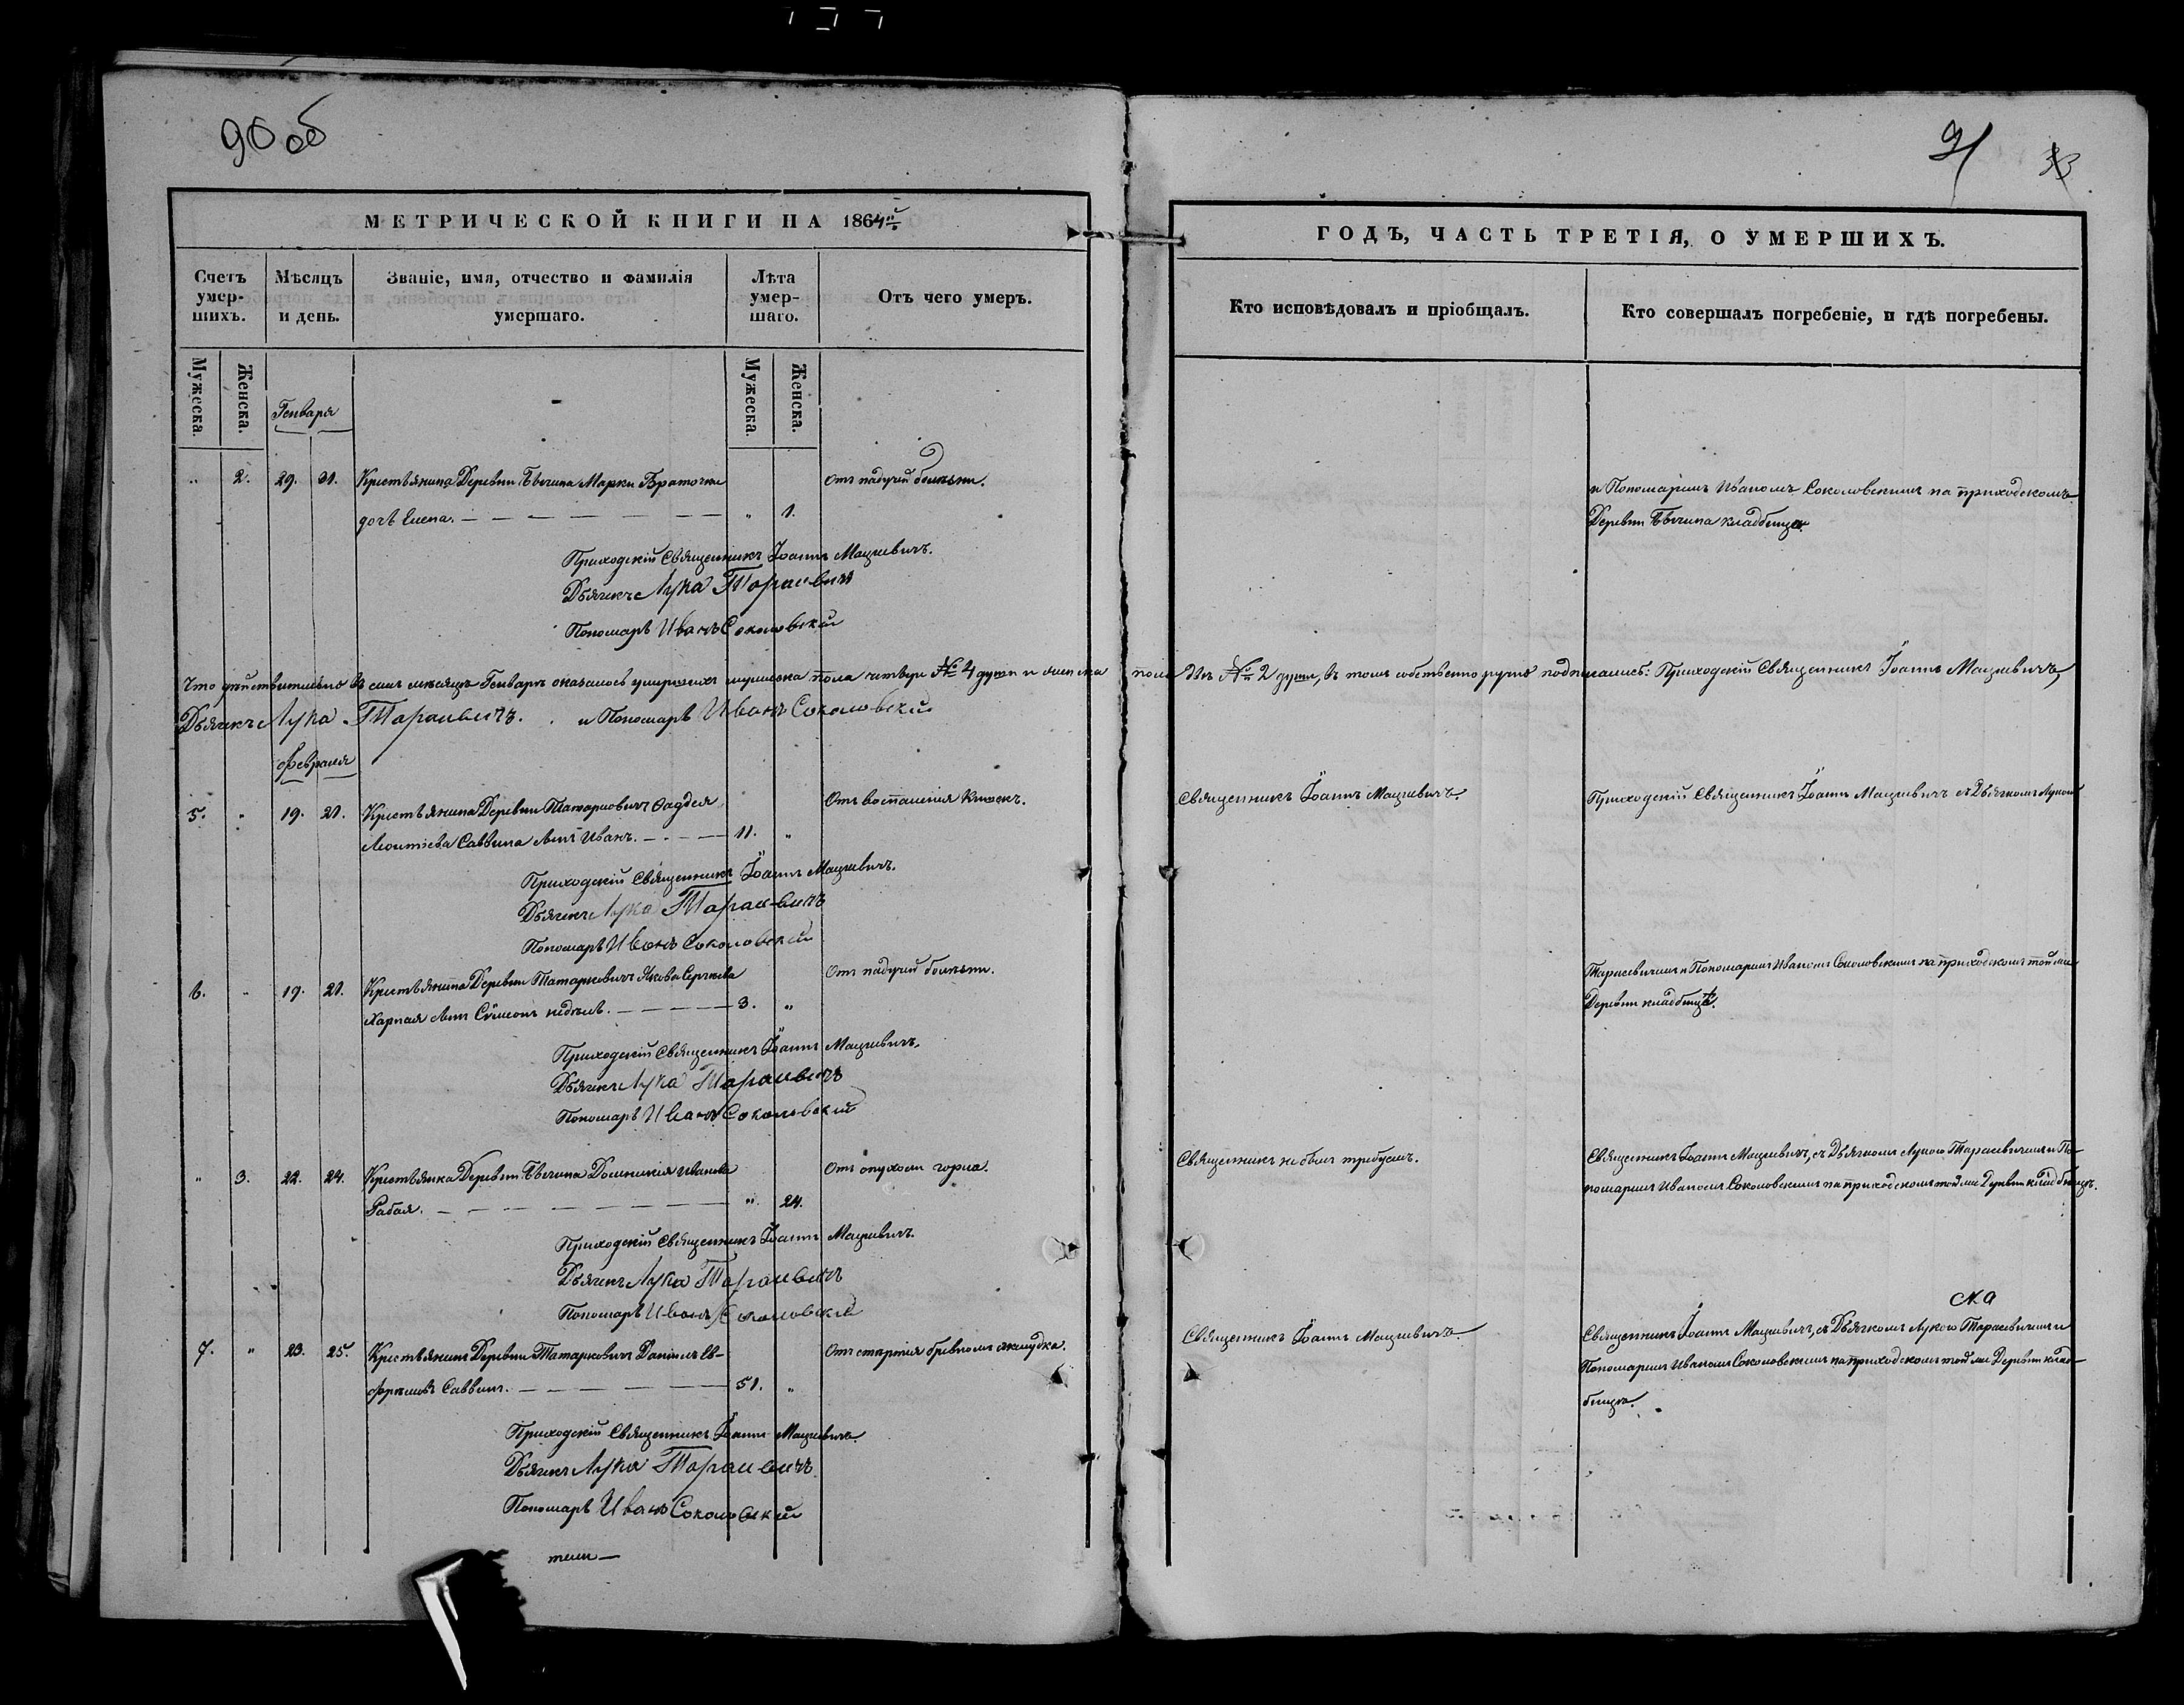 90 об
91
33
МЕТРИЧЕСКОЙ КНИГИ НА 1864й
ГОДЪ, ЧАСТЬ ТРЕТІЯ, О УМЕРШИХЪ.
Счетъ умер-шихъ.
Мѣсяцъ и день.
Званіе, имя, отчество и фамилія умершаго.
Лѣта умер-шаго.
Отъ чего умеръ.
Кто исповѣдовалъ и пріобщалъ.
Кто совершалъ погребеніе, и гдѣ погребены.
Мужеска.
Женска.
Генваря
Мужеска.
Женска.
" 2. 29. 31. Крестьянина Деревни Марки дочь Елена. — " 1. Отъ падучей болѣзни.
и Пономаремъ Иваномъ Соколовскимъ на приходскомъ
Деревни кладбищѣ.
Приходскій Священникъ Іоаннъ Мацкевичъ.
Дьячекъ Лука Тарасевичъ
Пономарь Иванъ Соколовскій
Что дѣйствительно въ семъ мѣсяцѣ Генварѣ оказалось умершихъ мужеска пола четыре № 4 души и женска пола двѣ № 2 души, въ томъ собственно ручно подписались: Приходскій Священникъ Іоаннъ Мацкевичъ,
Дьячекъ Лука Тарасевичъ. и Пономарь Иванъ Соколовскій
Февраля
5. " 19. 21. Крестьянина Деревни Татарковичъ Фаддея
Леонтіева Саввина сынъ Иванъ. — 11. "
Отъ воспаленія кишекъ.
Священникъ Іоаннъ Мацкевичъ.
Приходскій Священникъ Іоаннъ Мацкевичъ съ Дьячкомъ Лукою
Приходскій Священникъ Іоаннъ Мацкевичъ.
Дьячекъ Лука Тарасевичъ
Пономарь Иванъ Соколовскій
6. " 19. 21. Крестьянина Деревни Татарковичъ Якова Сергѣева
сынъ Сѵмеонъ недѣль. — 3. "
Отъ падучей болѣзни.
Тарасевичемъ и Пономаремъ Иваномъ Соколовскимъ на приходскомъ той же
Деревни кладбищѣ.
Приходскій Священникъ Іоаннъ Мацкевичъ.
Дьячекъ Лука Тарасевичъ
Пономарь Иванъ Соколовскій
" 3. 22. 24. Крестьянка Деревни Домникія Иванова
— " 24.
Отъ опухоли горла.
Священникъ не былъ требуемъ.
Священникъ Іоаннъ Мацкевичъ, съ Дьячкомъ Лукою Тарасевичемъ и По-
номаремъ Иваномъ Соколовскимъ на приходскомъ той же Деревни кладбищѣ.
Приходскій Священникъ Іоаннъ Мацкевичъ.
Дьячекъ Лука Тарасевичъ
Пономарь Иванъ Соколовскій
7. " 23. 25. Крестьянинъ Деревни Татарковичъ Даніилъ Ев-
фремовъ Саввинъ. — 51. "
Отъ стертія бревномъ желудка.
Священникъ Іоаннъ Мацкевичъ.
Священникъ Іоаннъ Мацкевичъ, съ Дьячкомъ Лукою Тарасевичемъ и
Пономаремъ Иваномъ Соколовскимъ на приходскомъ той же Деревни клад-
бищѣ.
Приходскій Священникъ Іоаннъ Мацкевичъ.
Дьячекъ Лука Тарасевичъ
Пономарь Иванъ Соколовскій